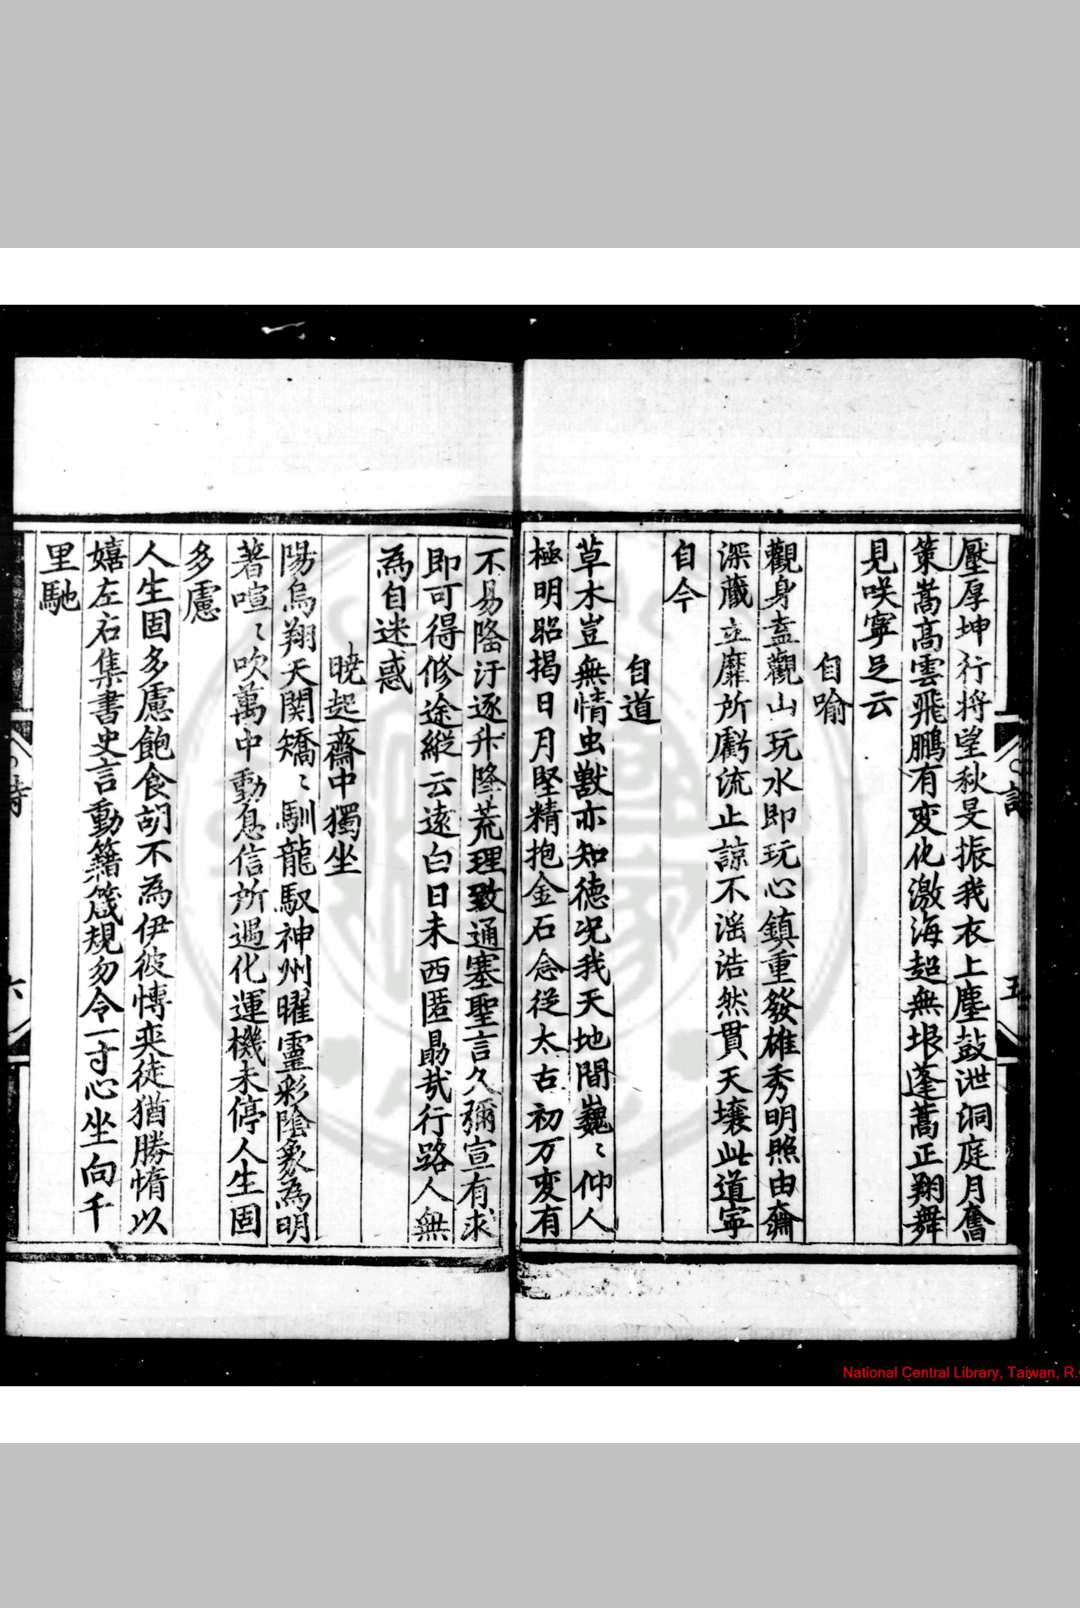 壓厚坤行將望秋旻振我衣上塵鼓泄洞庭月奮
策蒿高雲飛鵬有变化激海超無垠蓬蒿正翔舞
見咲寧足云
自喻
觀身盍觀山玩水即玩心鎮重發雄秀明照由淵
深藏立靡所虧流止諒不滛浩然貫天壤此道寧
自今
自道
草木豈無情虫獸亦知德况我天地間巍〻仲人
極明昭揭日月堅精抱金石念從太古初万变有
不易隆汙逐升降荒理致通塞聖言久彌宣有求
即可得修途縱云遠白日未西匿勗哉行路人無
為自迷惑
暁起齋中獨坐
陽烏翔天関矯〻馴龍馭神州曜靈彩陰象為明
著喧〻吹萬中動息信所遇化運機未停人生固
多慮
人生固多慮飽食胡不為伊彼愽奕徒猶勝惰以
嬉左右集書史言動籍箴規勿令一寸心坐向千
里馳
詩
五
六
National Central Library, Taiwan, R.